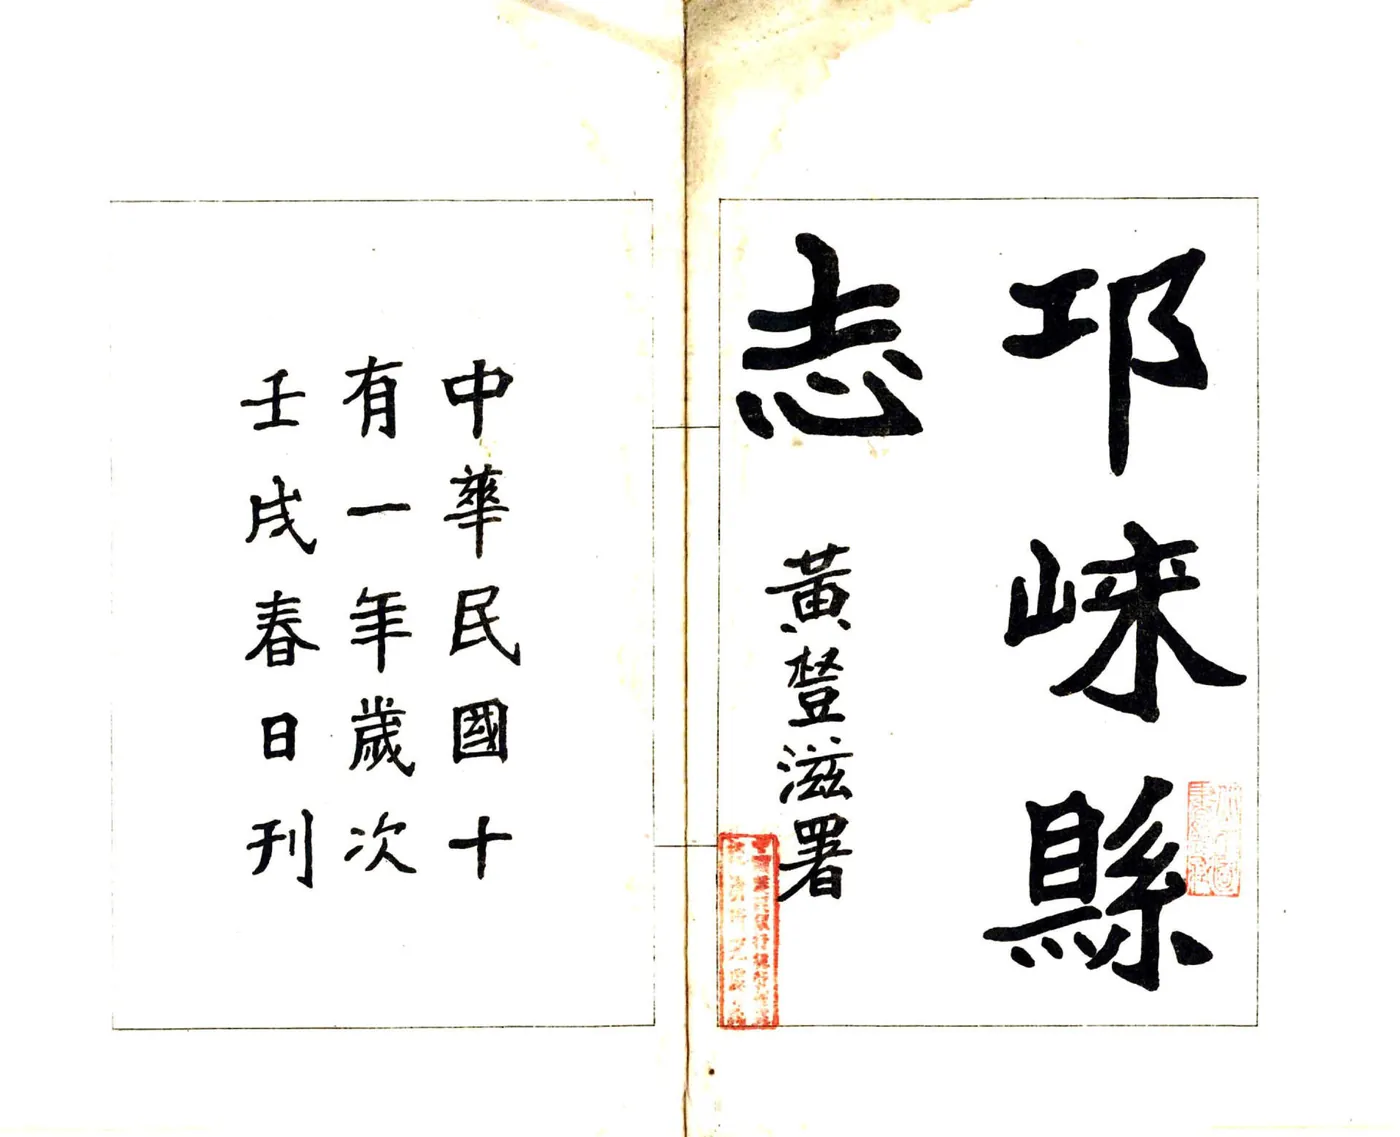 邛崍縣
志
黃豋滋署
中華民國十
有一年歲次
壬戌春日刊